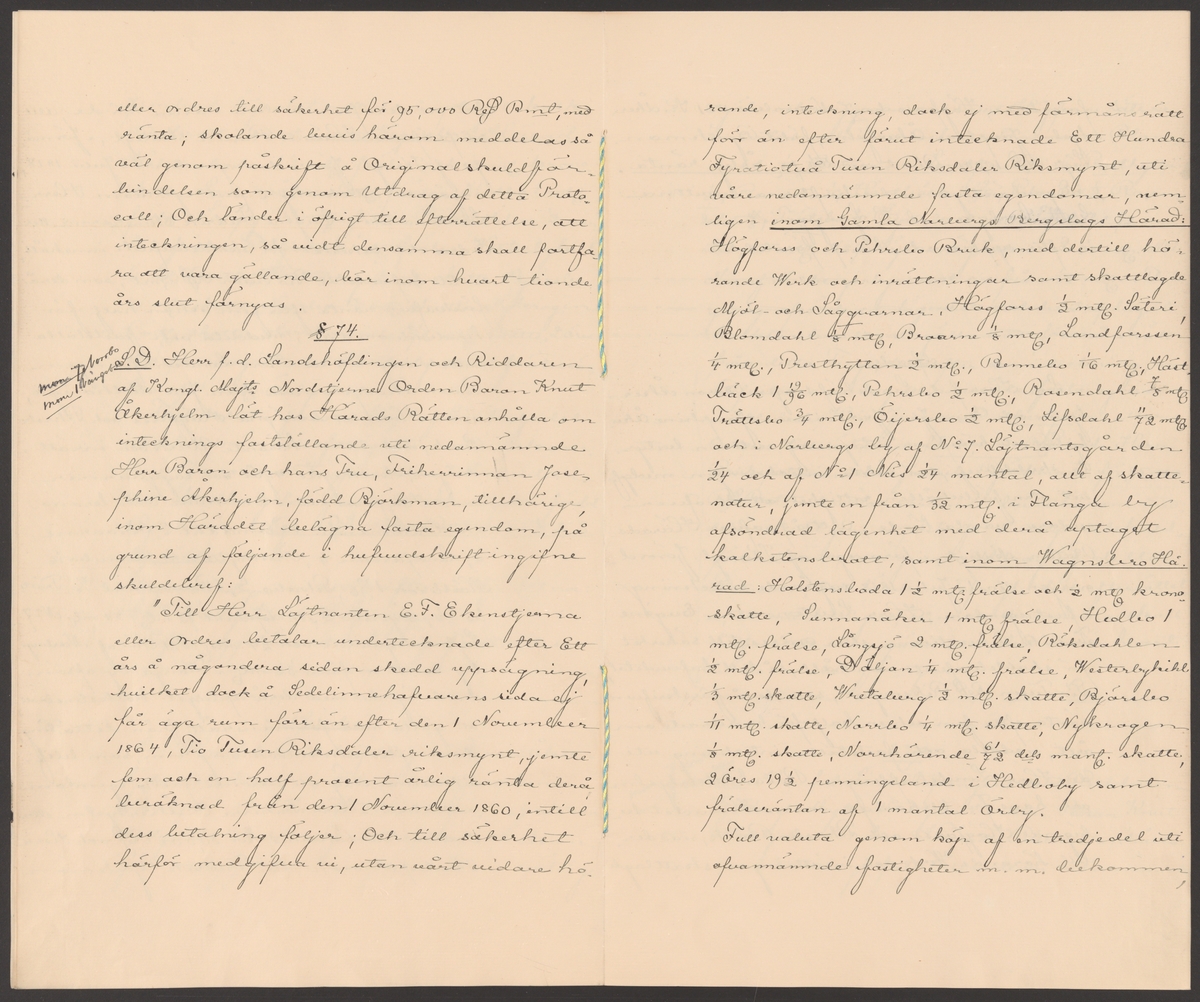 eller ordres till säkerhet för 95,000 Rd Rmt, med
ränta; skolande bevis härom meddelas så
väl genom påskrift å Originalskuldför-
bindelsen som genom Utdrag af detta Proto-
coll; Och länder i öfrigt till efterrättelse, att
inteckningen, så vidt densamma skall fortfa
ra att vara gällande, bör inom hvart tionde
års slut förnyas.
§ 74.
S. D. Herr f. d. Landshöfdingen och Riddaren
af Kongl. Majts Nordstjerne Orden Baron Knut
Åkerhjelm låt has Härads Rätten anhålla om
intecknings fastställande uti nedannämnde
Herr Baron och hans Fru, Friherrinnan Jose-
phine Åkerhjelm, född Björkman, tillhörige,
inom Häradet belägna fasta egendom, på
grund af följande i hufvudskrift ingifne
skuldebref:
"Till Herr Löjtnanten E. F. Ekenstjerna
eller ordres betalar undertecknade efter Ett
års å någondera sidan skedd uppsägning,
hvilket dock å Sedelinnehafvarens sida ej
får äga rum förr än efter den 1 November
1864, Tio Tusen Riksdaler riksmynt, jemte
fem och en half procent årlig ränta derå
beräknad från den 1 November 1860, intill
dess betalning följer; Och till säkerhet
härför medgifva vi, utan vårt vidare hö-
rande, inteckning, dock ej med förmånsrätt
förr än efter förut intecknade Ett Hundra
Fyratiotvå Tusen Riksdaler Riksmynt, uti
våre nedannämnde fasta egendomar, nem-
ligen inom Gamla Norbergs Bergslags Härad:
Högforss och Pehrsbo Bruk, med dertill hö-
rande Werk och inrättningar samt skattlagde
Mjöl- och Sågqvarnar, Högforss ½ mtl. Säteri,
Blomdahl ⅛ mtl, Broarne ⅛ mtl, Landforssen
¼ mtl., Presthyttan ½ mtl., Rennebo 1/16 mtl., Häst-
bäck 1 19/96 mtl., Pehrsbo ½ mtl., Rosendahl ⅞ mtl,
Trättsbo ¾ mtl., Öijersbo ½ mtl., Lifsdahl 11/72 mtl
och i Norbergs by af No 7. Löjtnantsgården
1/24 och af No 1 Näs 1/24 mantal, allt af skatte-
natur, jemte en från 1/32 mtl. i Flänga by
afsöndrad lägenhet med derå uptaget
kalkstensbrott, samt inom Wagnsbro Hä-
rad: Halstensboda 1 ½ mtl: frälse och ½ mtl krono-
skatte, Sunnanåker 1 mtl frälse, Hedbo 1
mtl. frälse, Långsjö 2 mtl. frälse, Röksdahlen
½ mtl. frälse, Däljan ¼ mtl. frälse, Westerbykihl
⅓ mtl. skatte, Wretaberg ½ mtl. skatte, Björsbo
1/11 mtl. skatte, Norrbo ¼ mtl. skatte, Nykrogen
⅛ mtl. skatte, Norrhärende 61/72 dels mantl. skatte,
2 öres 19 ½ penningeland i Hedboby samt
frälseräntan af 1 mantal Örby.
Full valuta genom köp af en tredjedel uti
ofvannämnde fastigheter m. m. bekommen,